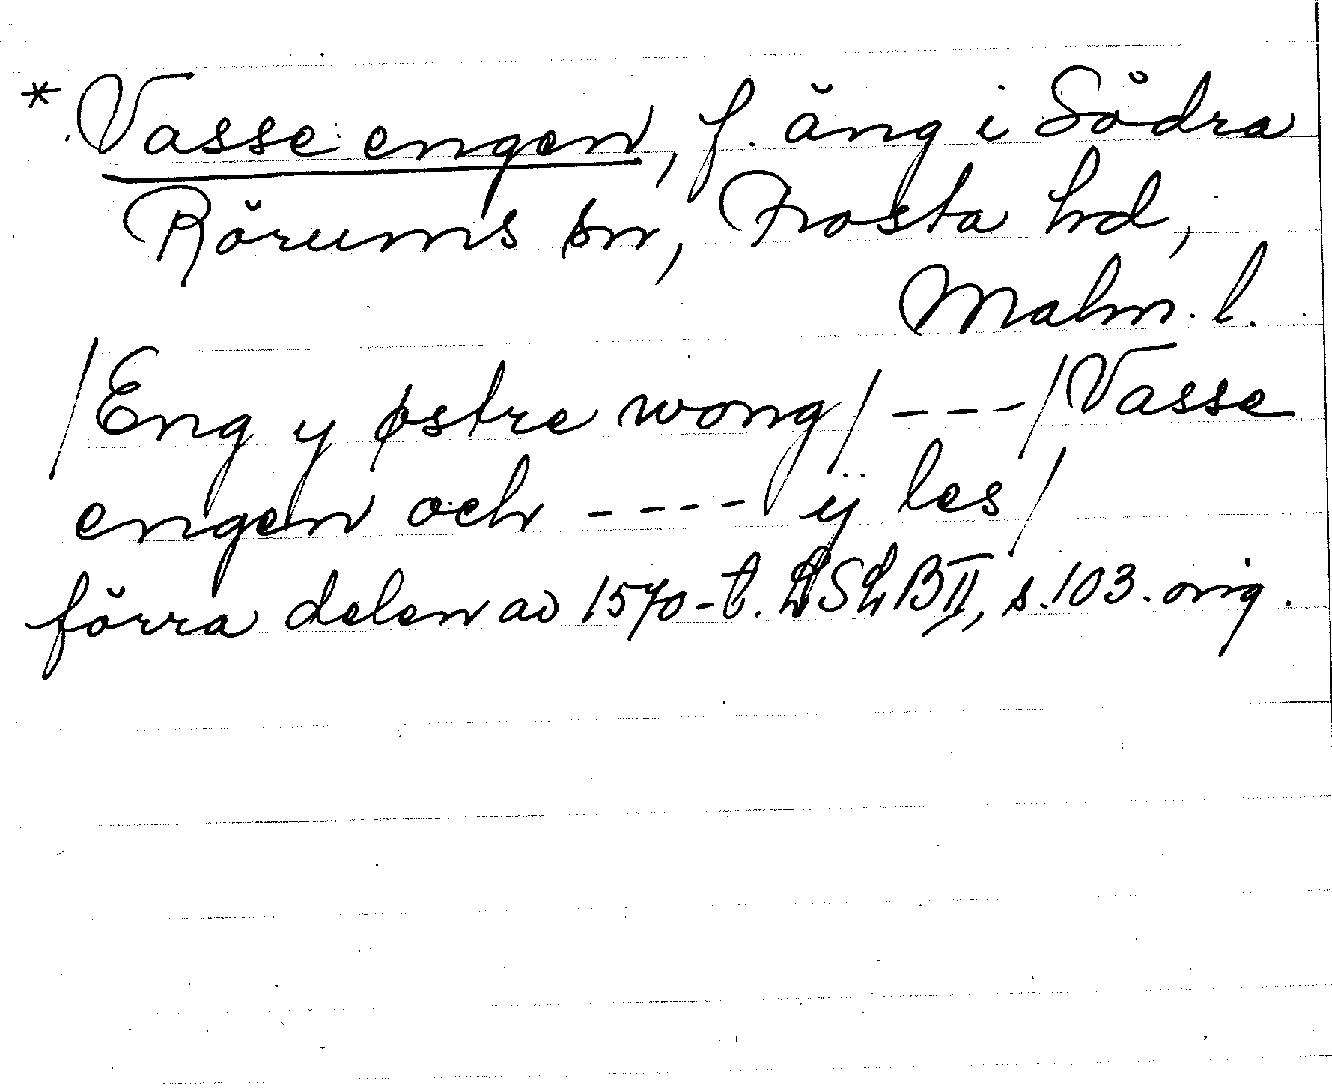 * Vasse engen, f. äng i Södra
Rörums sn, Frosta hd,
Malm. l.
/Eng y østre wong/ --- /Vasse
engen och ---- ÿ les/
förra delen av 1570-t. LSLB II, s. 103. orig.